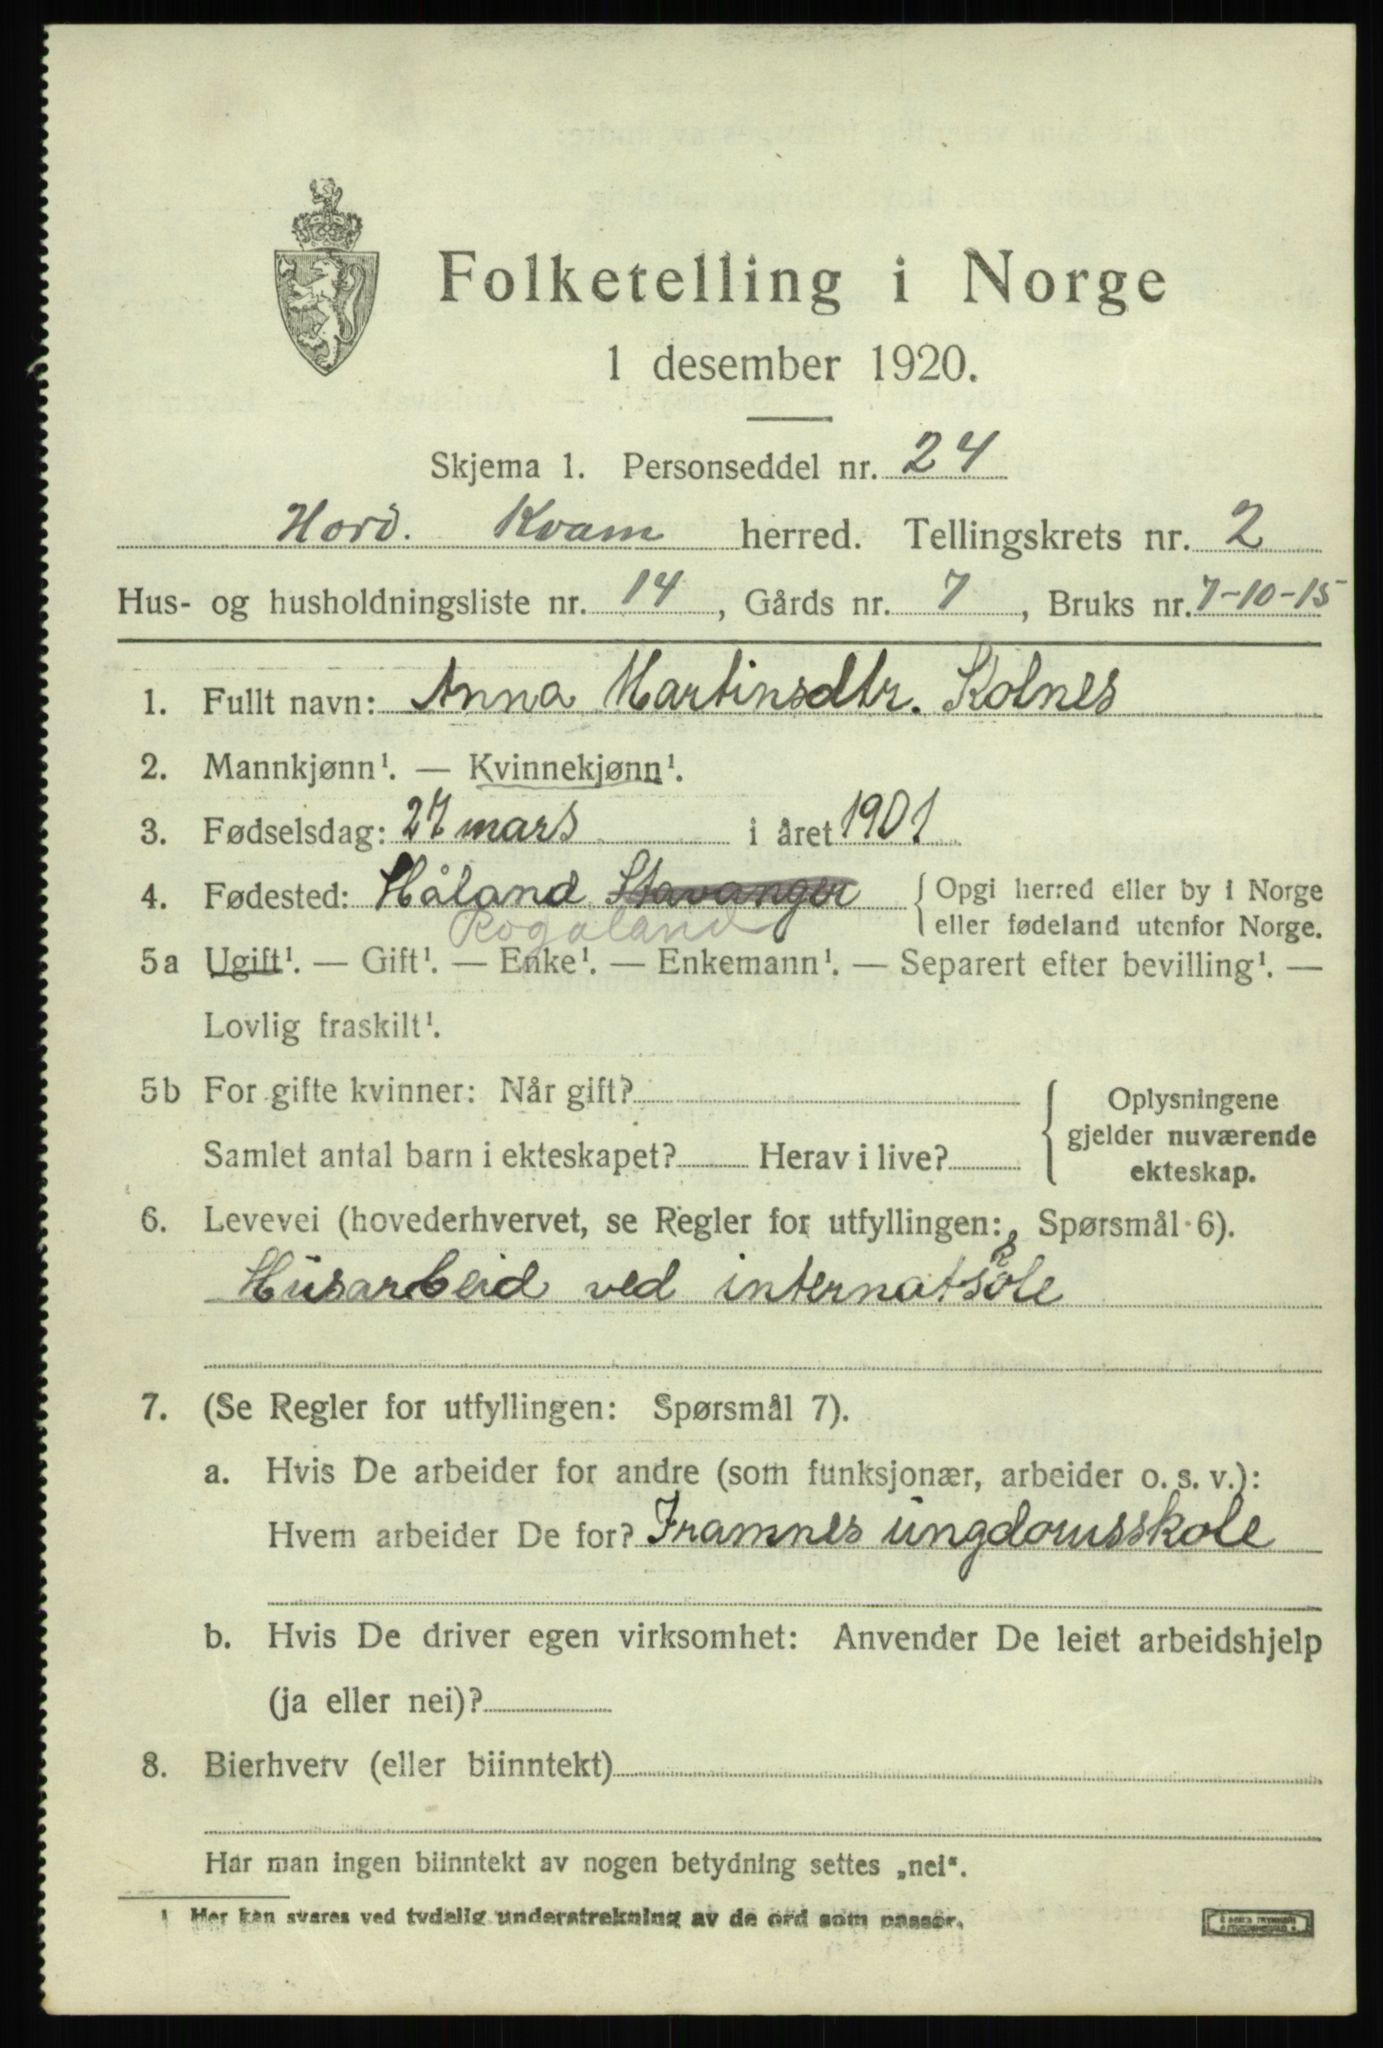 Folketelling i Norge
1 desember 1920.
Skjema 1. Personseddel nr. 24
Hord. Kvam herred. Tellingskrets nr. 2
Hus- og husholdningsliste nr. 14, Gårds nr. 7, Bruks nr. 7-10-15
1. Fullt navn: Anna Martinsdtr. Kolnes
2. Mannkjønn¹. — Kvinnekjønn¹.
3. Fødselsdag: 27 mars i året 1901
4. Fødested: Håland Stavanger { Opgi herred eller by i Norge
Rogaland eller fødeland utenfor Norge.
5a Ugift¹. — Gift¹. — Enke¹. — Enkemann¹. — Separert efter bevilling¹. —
Lovlig fraskilt¹.
5b For gifte kvinner: Når gift? { Oplysningene
gjelder nuværende
Samlet antal barn i ekteskapet? Herav i live?
ekteskap.
6. Levevei (hovederhvervet, se Regler for utfyllingen: Spørsmål 6).
Husarbeid ved internatskole
7. (Se Regler for utfyllingen: Spørsmål 7).
a. Hvis De arbeider for andre (som funksjonær, arbeider o. s. v.):
Hvem arbeider De for? Framnes ungdomsskole
b. Hvis De driver egen virksomhet: Anvender De leiet arbeidshjelp
(ja eller nei)?
8. Bierhverv (eller biinntekt)
Har man ingen biinntekt av nogen betydning settes „nei".
1 Her kan svares ved tydelig understrekning av de ord som passer.